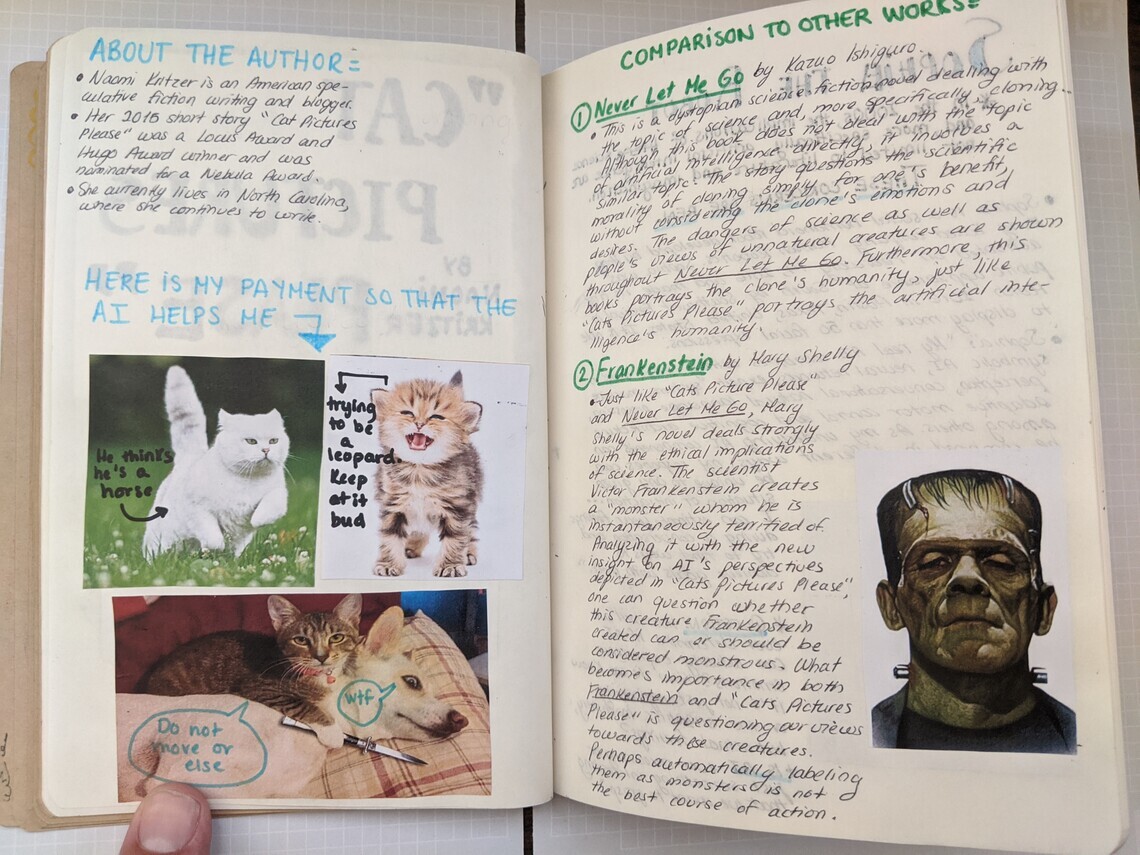 ABOUT THE AUTHOR:
• Naomi Kritzer is an American spe-
culative fiction writing and blogger.
• Her 2015 short story "Cat Pictures
Please" was a Locus Award and
Hugo Award winner and was
nominated for a Nebula Award.
• She currently lives in North Carolina,
where she continues to write.
HERE IS MY PAYMENT SO THAT THE
AI HELPS ME
He thinks
he's a
horse
trying
to be
a
leopard.
Keep
at it
bud
Do not
move or
else
wtf
COMPARISON TO OTHER WORKS:
① Never Let Me Go by Kazuo Ishiguro.
• This is a dystopian science fiction novel dealing with
the topic of science and, more specifically, cloning.
Although this book does not deal with the topic
of artificial intelligence directly, it involves a
similar topic. The story questions the scientific
morality of cloning simply for one's benefit,
without considering the clone's emotions and
desires. The dangers of science as well as
people's views of unnatural creatures are shown
throughout Never Let Me Go. Furthermore, this
books portrays the clone's humanity, just like
"Cats Pictures Please" portrays the artificial inte-
lligence's humanity.
② Frankenstein by Mary Shelly
• Just like "Cats Picture Please"
and Never Let Me Go, Mary
Shelly's novel deals strongly
with the ethical implications
of science. The scientist
Victor Frankenstein creates
a "monster" whom he is
instantaneously terrified of.
Analyzing it with the new
insight on AI's perspectives
depicted in "Cats Pictures Please",
one can question whether
this creature Frankenstein
created can or should be
considered monstrous. What
becomes importance in both
Frankenstein and "Cats Pictures
Please" is questioning our views
towards these creatures.
Perhaps automatically labeling
them as monsters is not
the best course of action.